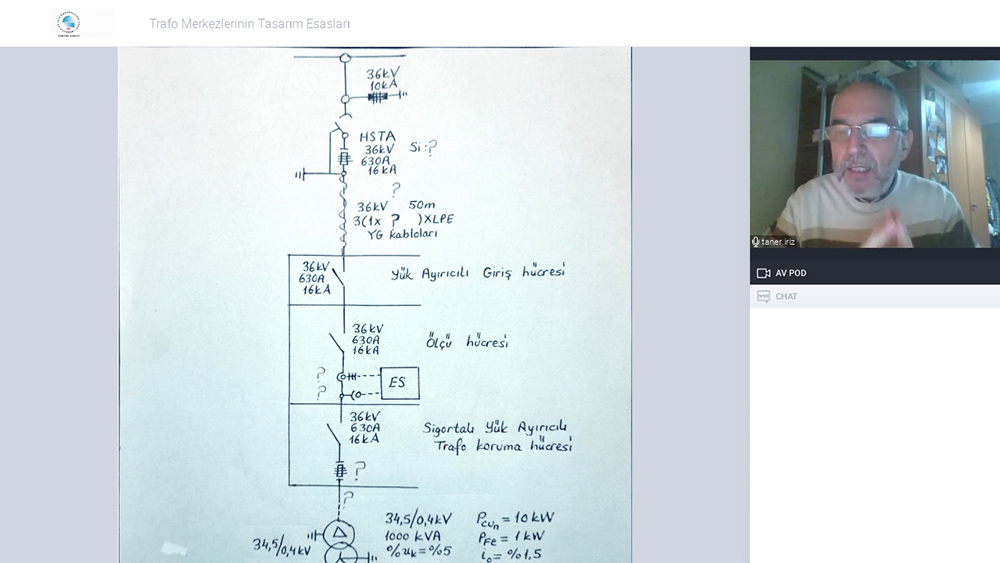 Trafo Merkezlerinin Tasarım Esasları
36kV
10kA
HSTA
36kV
630A
16kA
Si:?
?
36kV 50m
3(1x ? )XLPE
YG kabloları
36kV
630A
16kA
Yük Ayırıcılı Giriş hücresi
36kV
630A
16kA
Ölçü hücresi
?
?
ES
36kV
630A
16kA
Sigortalı Yük Ayırıcılı
Trafo koruma hücresi
?
?
34,5/0,4kV
34,5/0,4kV
1000 kVA
%uk=%5
PCun=10kW
PFe=1kW
io=%1,5
taner iriz
AV POD
CHAT